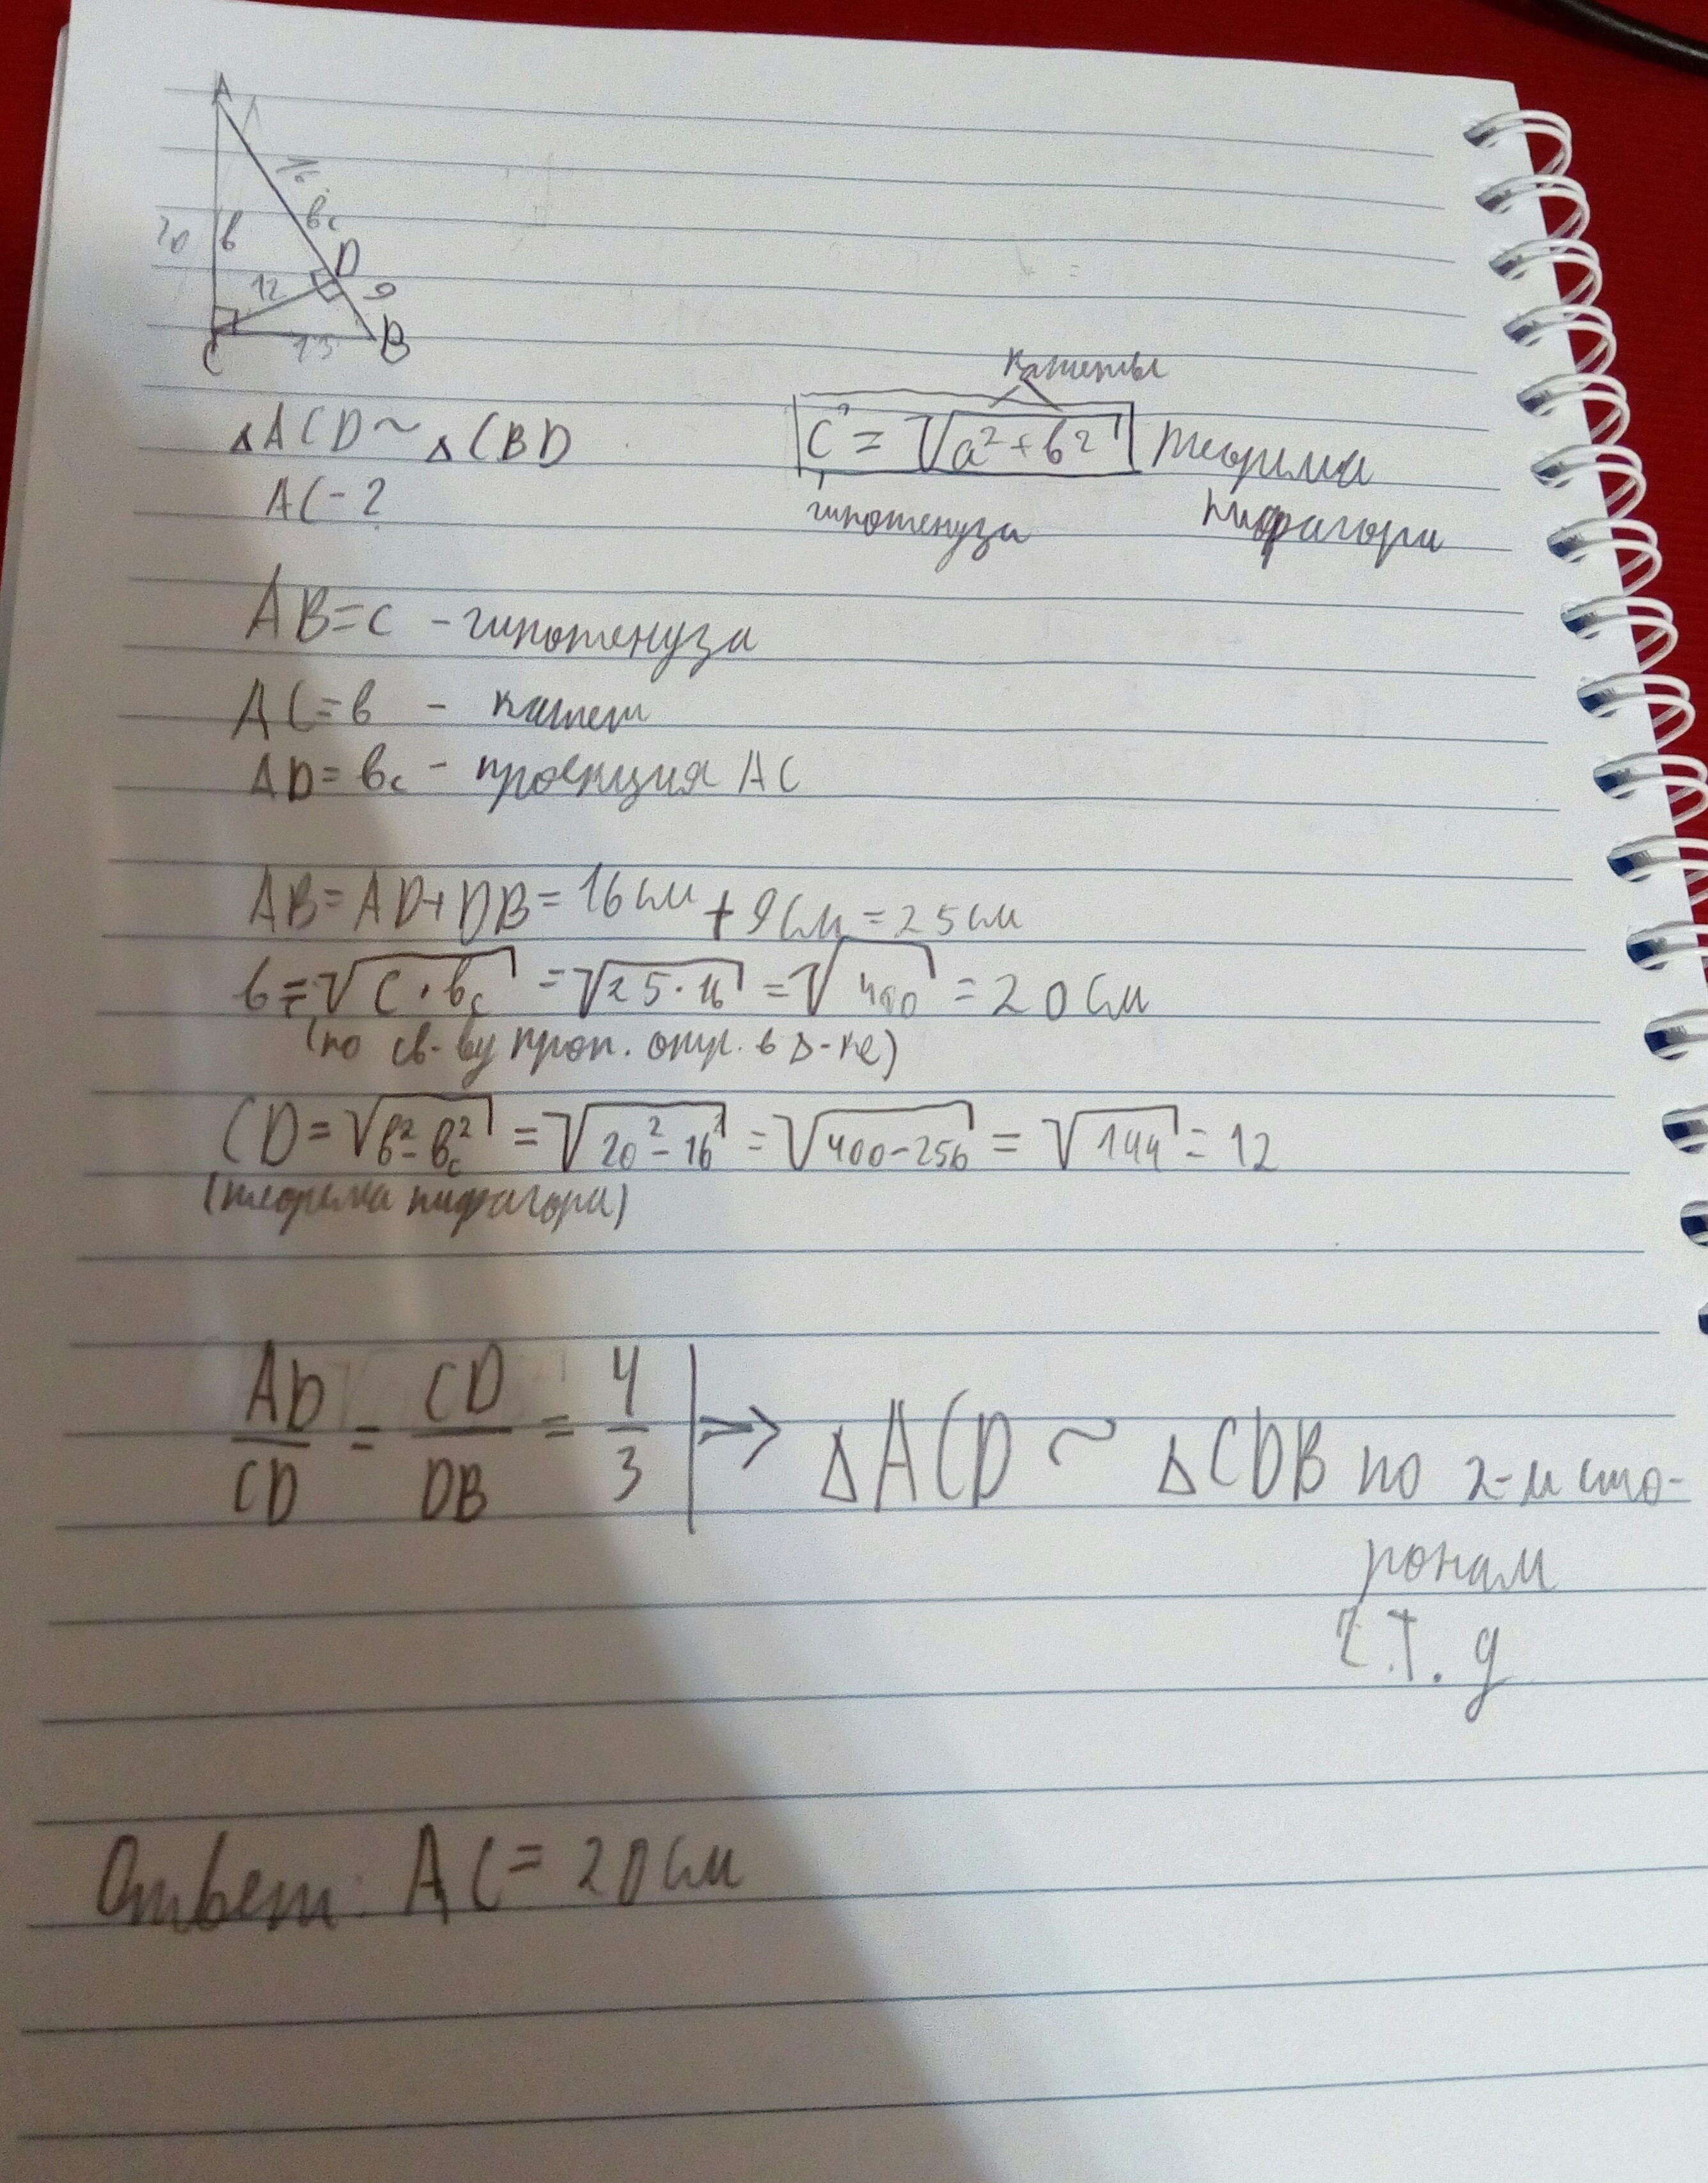 A
16
bc
20 b
D
12 9
C 15 B
катеты
△ACD ~ △CBD
c = √a²+b² теорема
AC - ?
гипотенуза пифагора
AB = c - гипотенуза
AC = b - катет
AD = bc - проекция AC
AB = AD + DB = 16 см + 9 см = 25 см
b = √c · bc = √25 · 16 = √400 = 20 см
(по св-ву проп. отр. в △-ке)
CD = √b² - bc² = √20² - 16² = √400 - 256 = √144 = 12
(теорема пифагора)
AD/CD = CD/DB = 4/3 | => △ACD ~ △CDB по 2-м сто-
ронам
Ч.Т.Д
Ответ: AC = 20 см